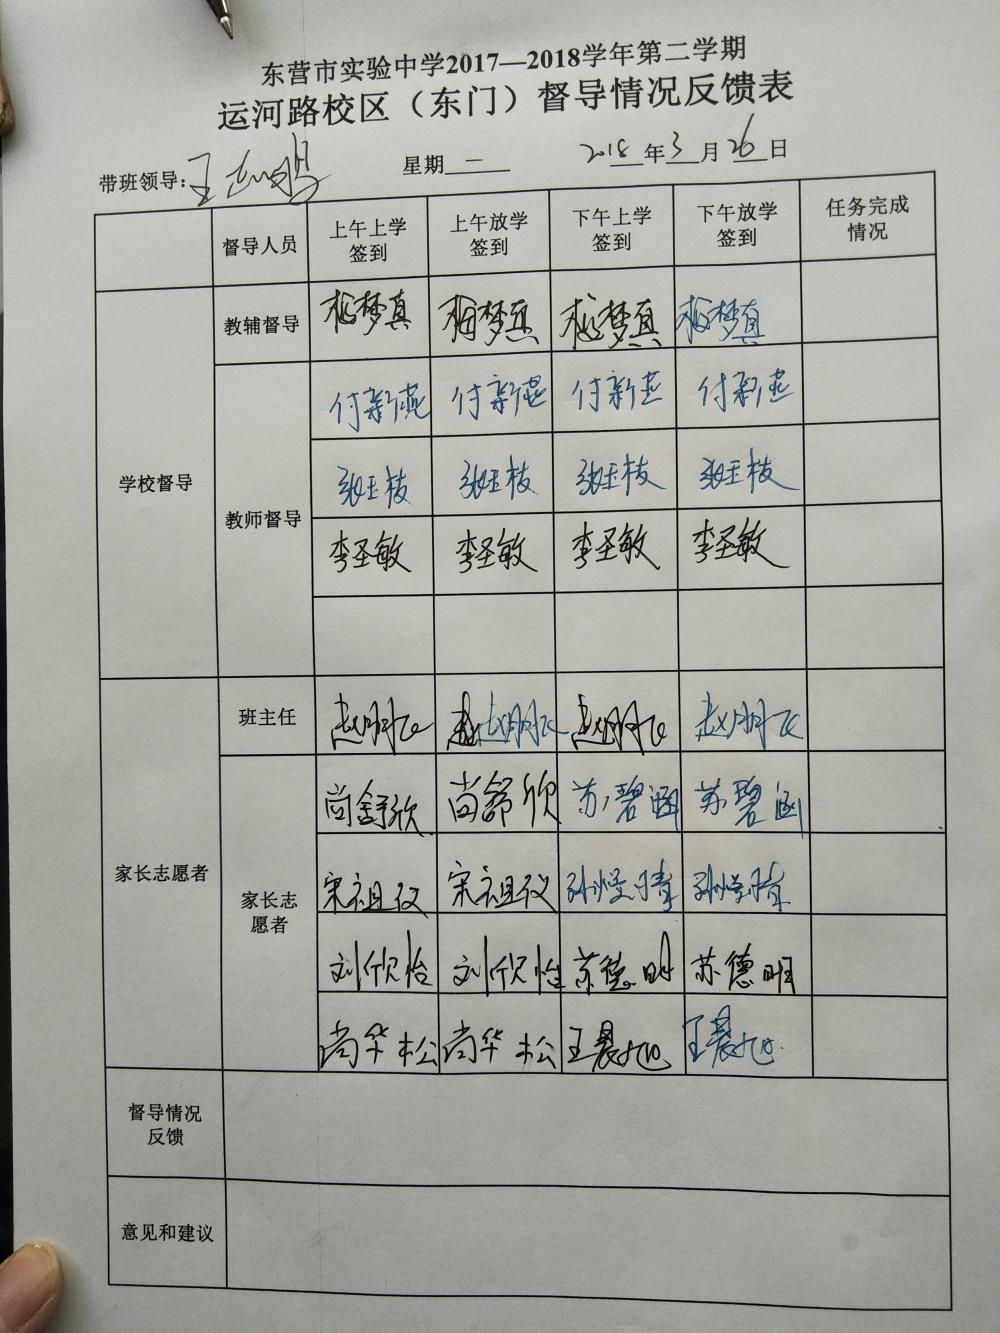 东营市实验中学2017—2018学年第二学期
运河路校区（东门）督导情况反馈表
带班领导：王志鹏 星期二 2018年3月26日
督导人员 上午上学签到 上午放学签到 下午上学签到 下午放学签到 任务完成情况
学校督导
教辅督导 梦真 梦真 梦真 梦真
教师督导
付新燕 付新燕 付新燕 付新燕
张玉枝 张玉枝 张玉枝 张玉枝
李圣敏 李圣敏 李圣敏 李圣敏
家长志愿者
班主任 赵明飞 赵明飞 赵明飞 赵明飞
家长志愿者
尚舒欣 尚舒欣 苏碧涵 苏碧涵
宋祖仪 宋祖仪 孙 晴 孙 晴
刘欣怡 刘欣怡 苏德明 苏德明
尚华松 尚华松 王晨旭 王晨旭
督导情况反馈
意见和建议